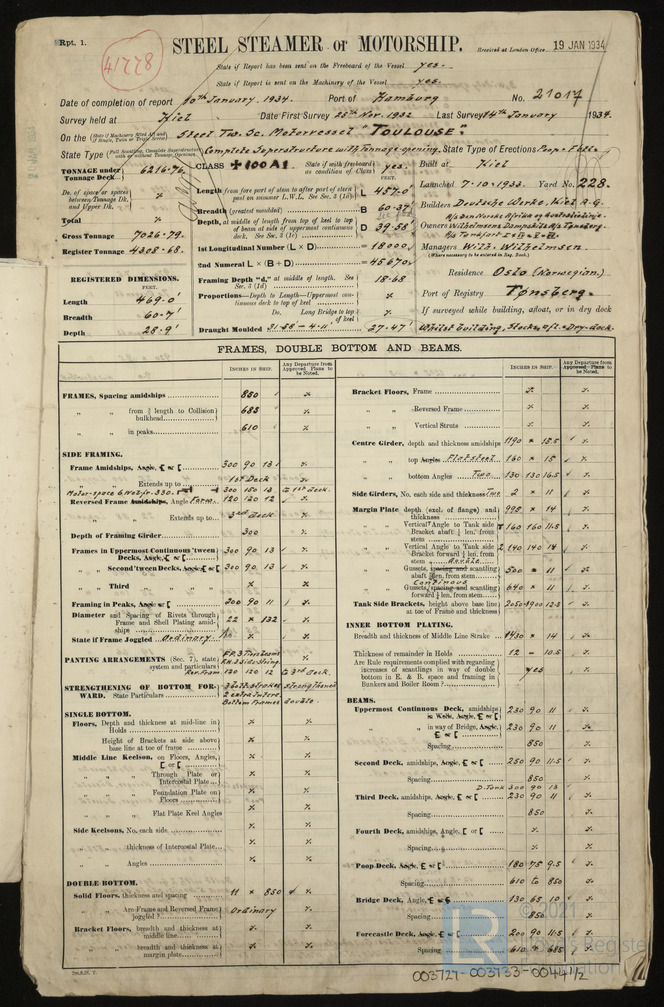 Rpt. 1.
41778
STEEL STEAMER or MOTORSHIP.
Received at London Office 19 JAN 1934
State if Report has been sent on the Freeboard of the Vessel yes.
State if Report is sent on the Machinery of the Vessel yes.
Date of completion of report 10th January, 1934. Port of Hamburg No. 21017
Survey held at Kiel Date First Survey 25th Nov. 1932 Last Survey 14th January 1934.
On the (State if Machinery fitted Aft and if Single, Twin or Triple Screw) Steel Tw. Sc. Motorvessel "TOULOUSE"
State Type (Full Scantling, Complete Superstructure with or without Tonnage Opening) Complete Superstructure with Tonnage opening. State Type of Erections Poop - F'cle
TONNAGE under Tonnage Deck 6216.76.
Do. of space or spaces between Tonnage Dk. and Upper Dk.
Total
Gross Tonnage 7026.79.
Register Tonnage 4308.68.
REGISTERED DIMENSIONS.
FEET.
Length 469.0'
Breadth 60.7'
Depth 28.9'
CLASS ✠ 100A1 State if with freeboard as condition of Class yes.
FEET.
Length from fore part of stem to after part of stern post on summer L.W.L. See Sec. 3 (1a) L 457.0'
Breadth (greatest moulded) B 60.39'
Depth, at middle of length from top of keel to top of beam at side of uppermost continuous deck. See Sec. 3 (1c) D 39.58'
1st Longitudinal Number (L × D) = 18000
2nd Numeral L × (B + D) = 45670
Framing Depth "d," at middle of length. See Sec. 3 (1d) 18.68
Proportions—Depth to Length—Uppermost continuous deck to top of keel
Do. Long Bridge to top of keel
Draught Moulded 31.58' - 4.11' 27.47'
Built at Kiel
Launched 7.10.1933. Yard No. 228.
Builders Deutsche Werke, Kiel A.G.
Owners Wilhelmsens Dampskibs A/s Tønsberg.
Managers Wilh. Wilhelmsen.
(Where necessary to be entered in Reg. Book.)
Residence Oslo (Norwegian.)
Port of Registry Tønsberg.
If surveyed while building, afloat, or in dry dock
Whilst building, Stocks, aft. & Dry-dock
FRAMES, DOUBLE BOTTOM AND BEAMS.
INCHES IN SHIP. Any Departure from Approved Plans to be Noted.
FRAMES, Spacing amidships 850
" " from ⅗ length to Collision bulkhead 685
" " in peaks 610
SIDE FRAMING.
Frame Amidships, Angle, [ or [ 300 90 13
" " Extends up to 1st Deck
Reversed Frame Amidships, Angle Form. 120 120 12
" " Extends up to 3rd deck
Depth of Framing Girder 300
Frames in Uppermost Continuous 'tween Decks, Angle, [ or [ 300 90 13
" " Second 'tween Decks, Angle, [ or [ 300 90 13
" " Third
Framing in Peaks, Angle or [ 200 90 11
Diameter and Spacing of Rivets through Frame and Shell Plating amidships 22 × 132
State if Frame Joggled Ordinary
PANTING ARRANGEMENTS (Sec. 7), state system and particulars
STRENGTHENING OF BOTTOM FORWARD. State Particulars
Bottom Frames double.
SINGLE BOTTOM.
Floors, Depth and thickness at mid-line in Holds
Height of Brackets at side above base line at toe of frame
Middle Line Keelson, on Floors, Angles, [ or [
" " Through Plate or Intercostal Plate
" " Foundation Plate on Floors
" " Flat Plate Keel Angles
Side Keelsons, No. each side
" " thickness of Intercostal Plate
" " Angles
DOUBLE BOTTOM.
Solid Floors, thickness and spacing 11 × 850
" " Are Frame and Reversed Frame joggled? Ordinary
Bracket Floors, breadth and thickness at middle line
" " breadth and thickness at margin plate
INCHES IN SHIP. Any Departure from Approved Plans to be Noted.
Bracket Floors, Frame
" " Reversed Frame
" " Vertical Struts
Centre Girder, depth and thickness amidships 1190 × 15.5
" " top Angles 160 × 15
" " bottom Angles Two 130 130 16.5
Side Girders, No. each side and thickness 2 × 11
Margin Plate depth (excl. of flange) and thickness 998 × 14
" " Vertical Angle to Tank side Bracket abaft ¼ len. from stem 160 160 11.5
" " Vertical Angle to Tank side Bracket forward ¼ len. from stem 140 140 14
" " Gussets, spacing and scantling abaft ¼ len. from stem 500 × 11
" " Gussets, spacing and scantling forward ¼ len. from stem Continous 640 × 11
Tank Side Brackets, height above base line at toe of Frame and thickness
INNER BOTTOM PLATING.
Breadth and thickness of Middle Line Strake 1430 × 14
Thickness of remainder in Holds 12 - 10.5
Are Rule requirements complied with regarding increases of scantlings in way of double bottom in E. & B. space and framing in Bunkers and Boiler Room? yes
BEAMS.
Uppermost Continuous Deck, amidships 230 90 11
" " in way of Bridge, Angle, [ or [ 230 90 11
Spacing 850
Second Deck, amidships, Angle, [ or [ 250 90 11.5
Spacing 850
D. Tank 300 90 13
Third Deck, amidships, Angle, [ or [ 230 90 11
Spacing 850
Fourth Deck, amidships, Angle, [ or [
Spacing
Poop Deck, Angle, [ or [ 180 75 9.5
Spacing 610 to 850
Bridge Deck, Angle, [ or [ 130 65 10
Spacing 850
Forecastle Deck, Angle, [ or [ 200 90 11.5
Spacing 610 × 685
© 2021
Lloyd's Register Foundation
003727-003733-0044 1/2